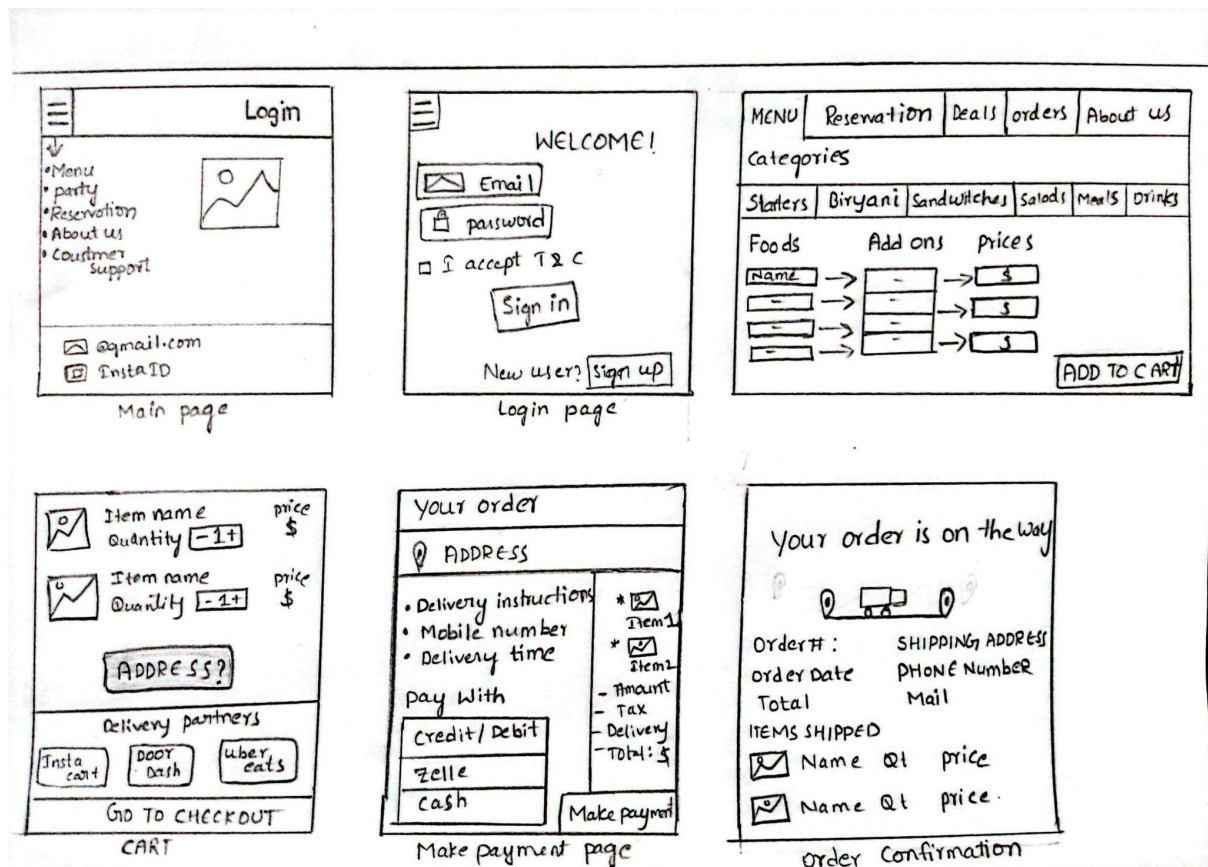 Login
Menu
party
Reservation
About us
Coustmer
support
@gmail.com
Insta ID
Main page
WELCOME!
Email
password
I accept T & C
Sign in
New user? Sign up
Login page
MENU Reservation Deals orders About us
Categories
Starters Biryani Sandwitches Salads Meals Drinks
Foods Add ons prices
Name - $
- - $
- - $
- -
ADD TO CART
Item name price
Quantity - 1 + $
Item name price
Quantity - 1 + $
ADDRESS?
Delivery partners
Insta cart Door Dash Uber eats
GO TO CHECKOUT
CART
Your order
ADDRESS
• Delivery instructions
• Mobile number
• Delivery time
Pay With
Credit/Debit
Zelle
Cash
* Item1
* Item2
- Amount
- Tax
- Delivery
- Total: $
Make payment
Make payment page
Your order is on the way
Order#: SHIPPING ADDRESS
Order Date PHONE Number
Total Mail
ITEMS SHIPPED
Name Qt price
Name Qt price.
Order Confirmation